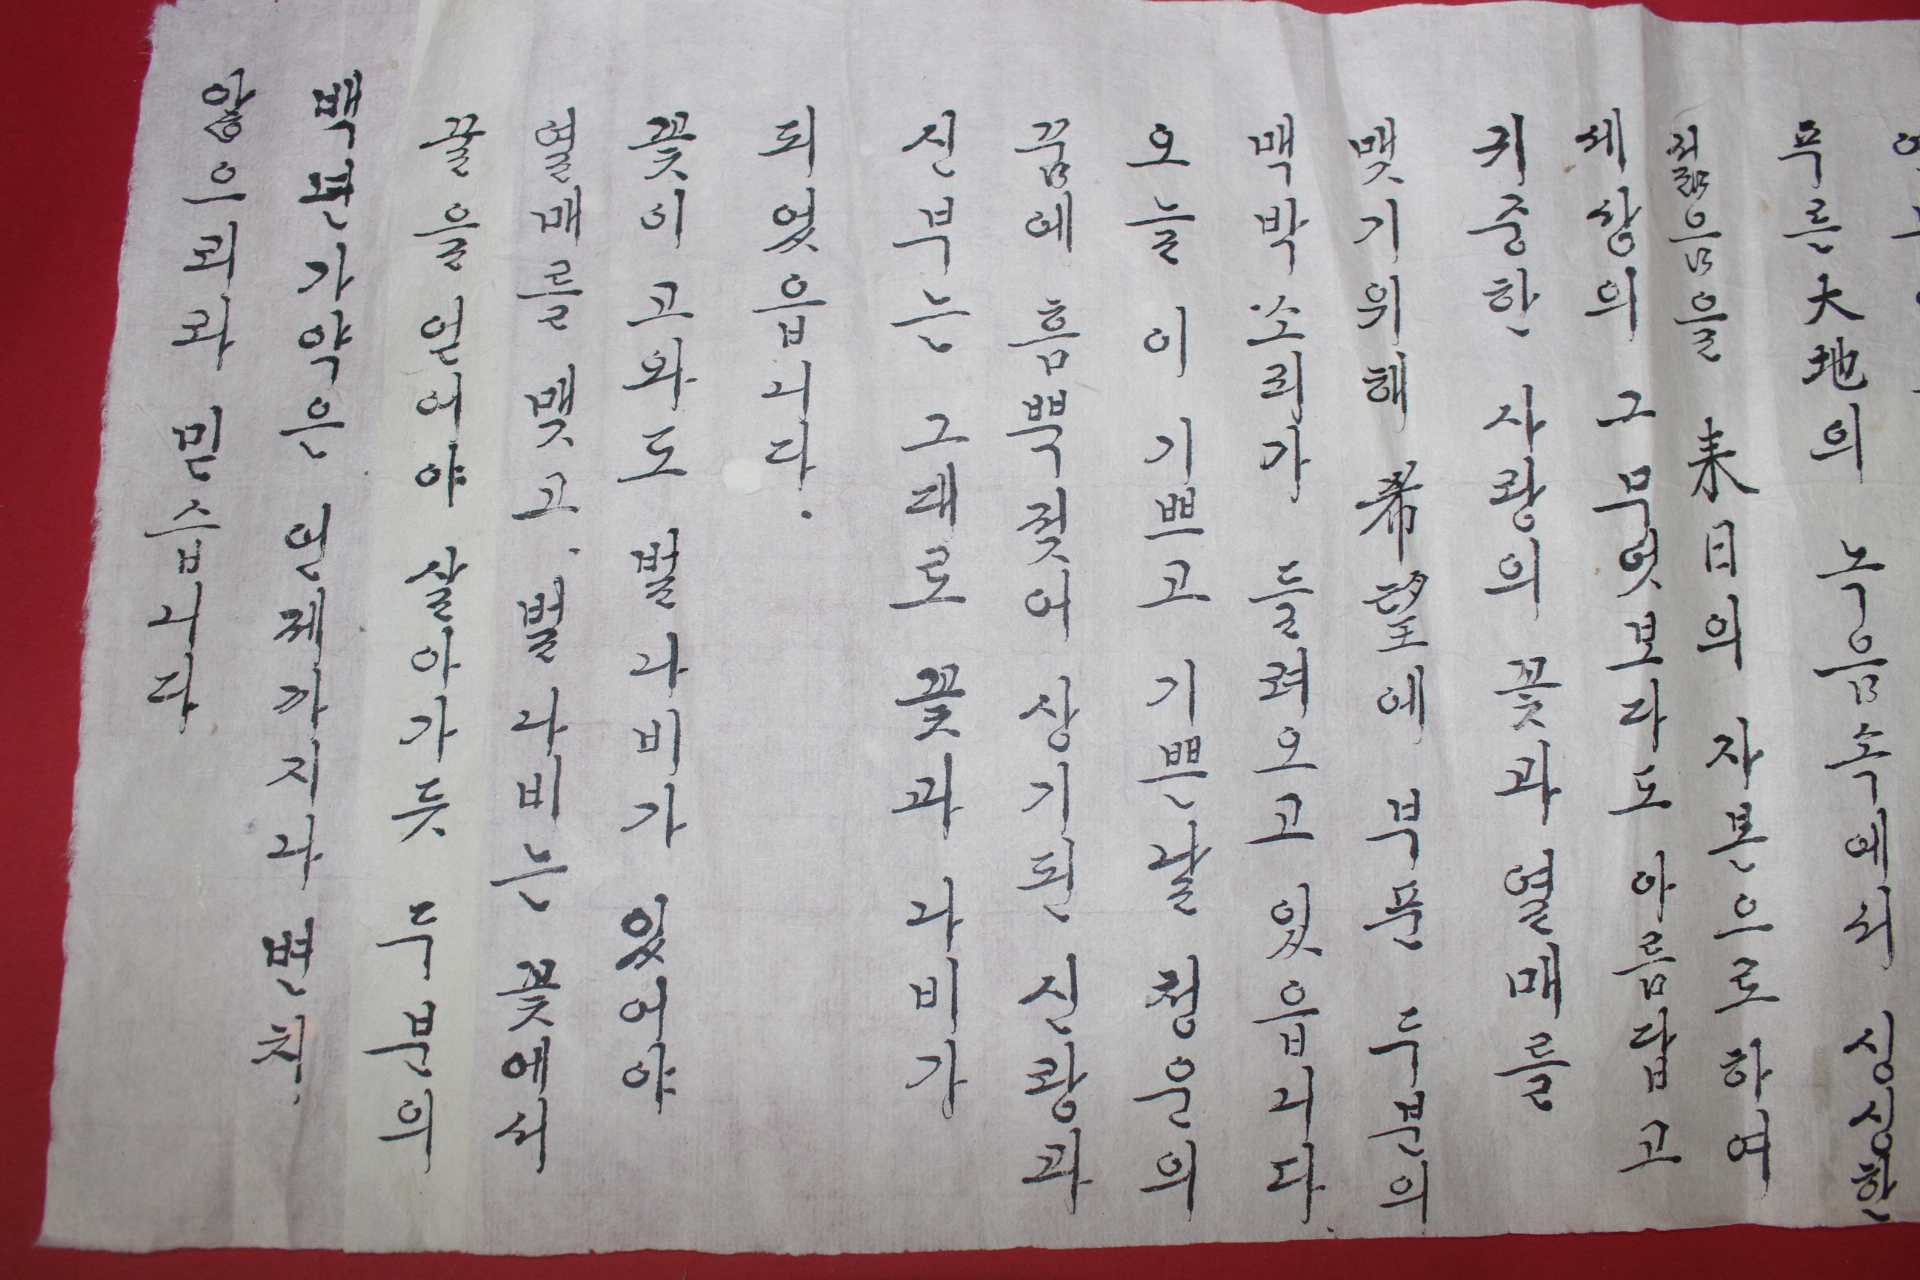 푸른 大地의 녹음속에서 싱싱한
젊음을 未日의 자본으로 하여
세상의 그 무엇보다도 아름답고
귀중한 사랑의 꽃과 열매를
맺기위해 希望에 부푼 두분의
맥박 소리가 들려오고 있읍니다
오늘 이 기쁘고 기쁜날 청운의
꿈에 흠뻑젖어 상기된 신랑과
신부는 그대로 꽃과 나비가
되였읍니다.
꽃이 고와도 벌나비가 있어야
열매를 맺고, 벌나비는 꽃에서
꿀을 얻어야 살아가듯 두분의
백년가약은 언제까지나 변치
않으리라 믿습니다